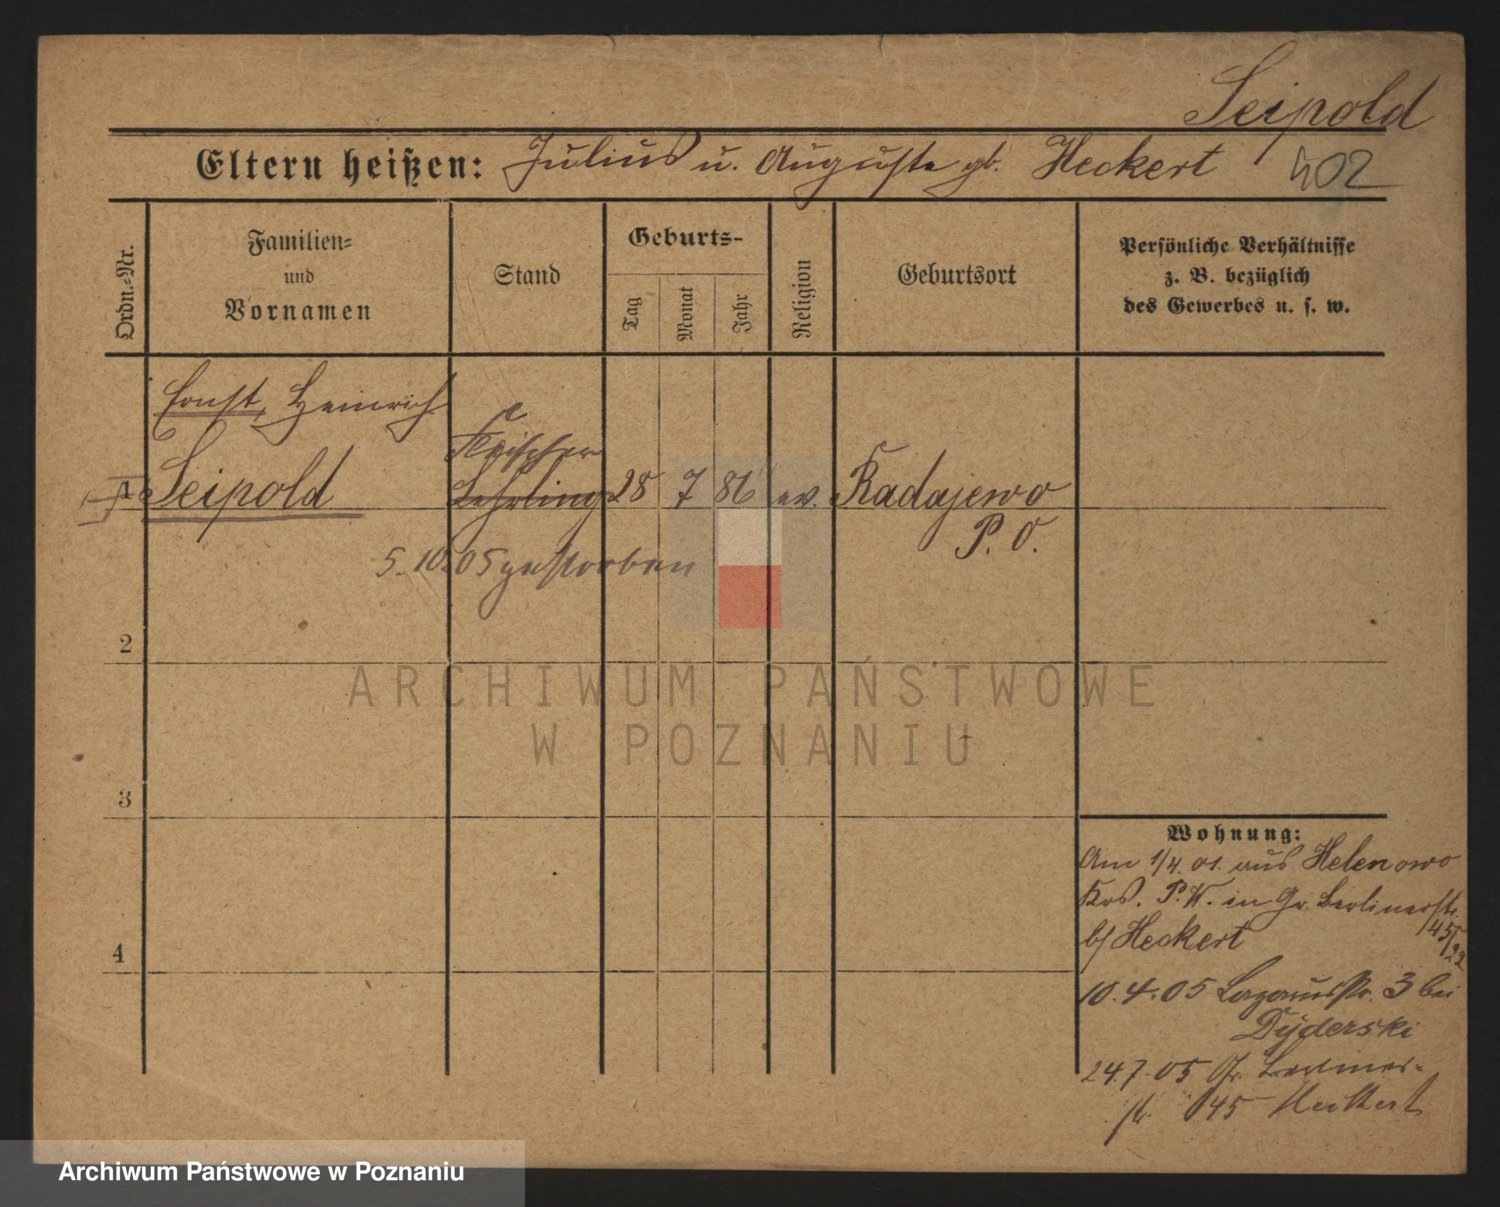 Seipold
Eltern heißen: Julius u. Auguste gb. Heckert
502
Ordn.-Nr.
Familien-
und
Vornamen
Stand
Geburts-
Tag
Monat
Jahr
Religion
Geburtsort
Persönliche Verhältnisse
z. B. bezüglich
des Gewerbes u. s. w.
Ernst, Heinrich
Fleischer
1 Seipold Lehrling 28 7 86 ev. Radajewo
P. O.
5.10.05 gestorben
2
3
4
Wohnung:
Am 1/4.01. aus Helenowo
Krs. P. W. in Gr. Berlinerstr.
45/22
b/ Heckert
10.4.05 Lazarusstr. 3 bei
Dyderski
24.7.05 Gr. Berliner-
str. 45 Heckert
ARCHIWUM PAŃSTWOWE
W POZNANIU
Archiwum Państwowe w Poznaniu